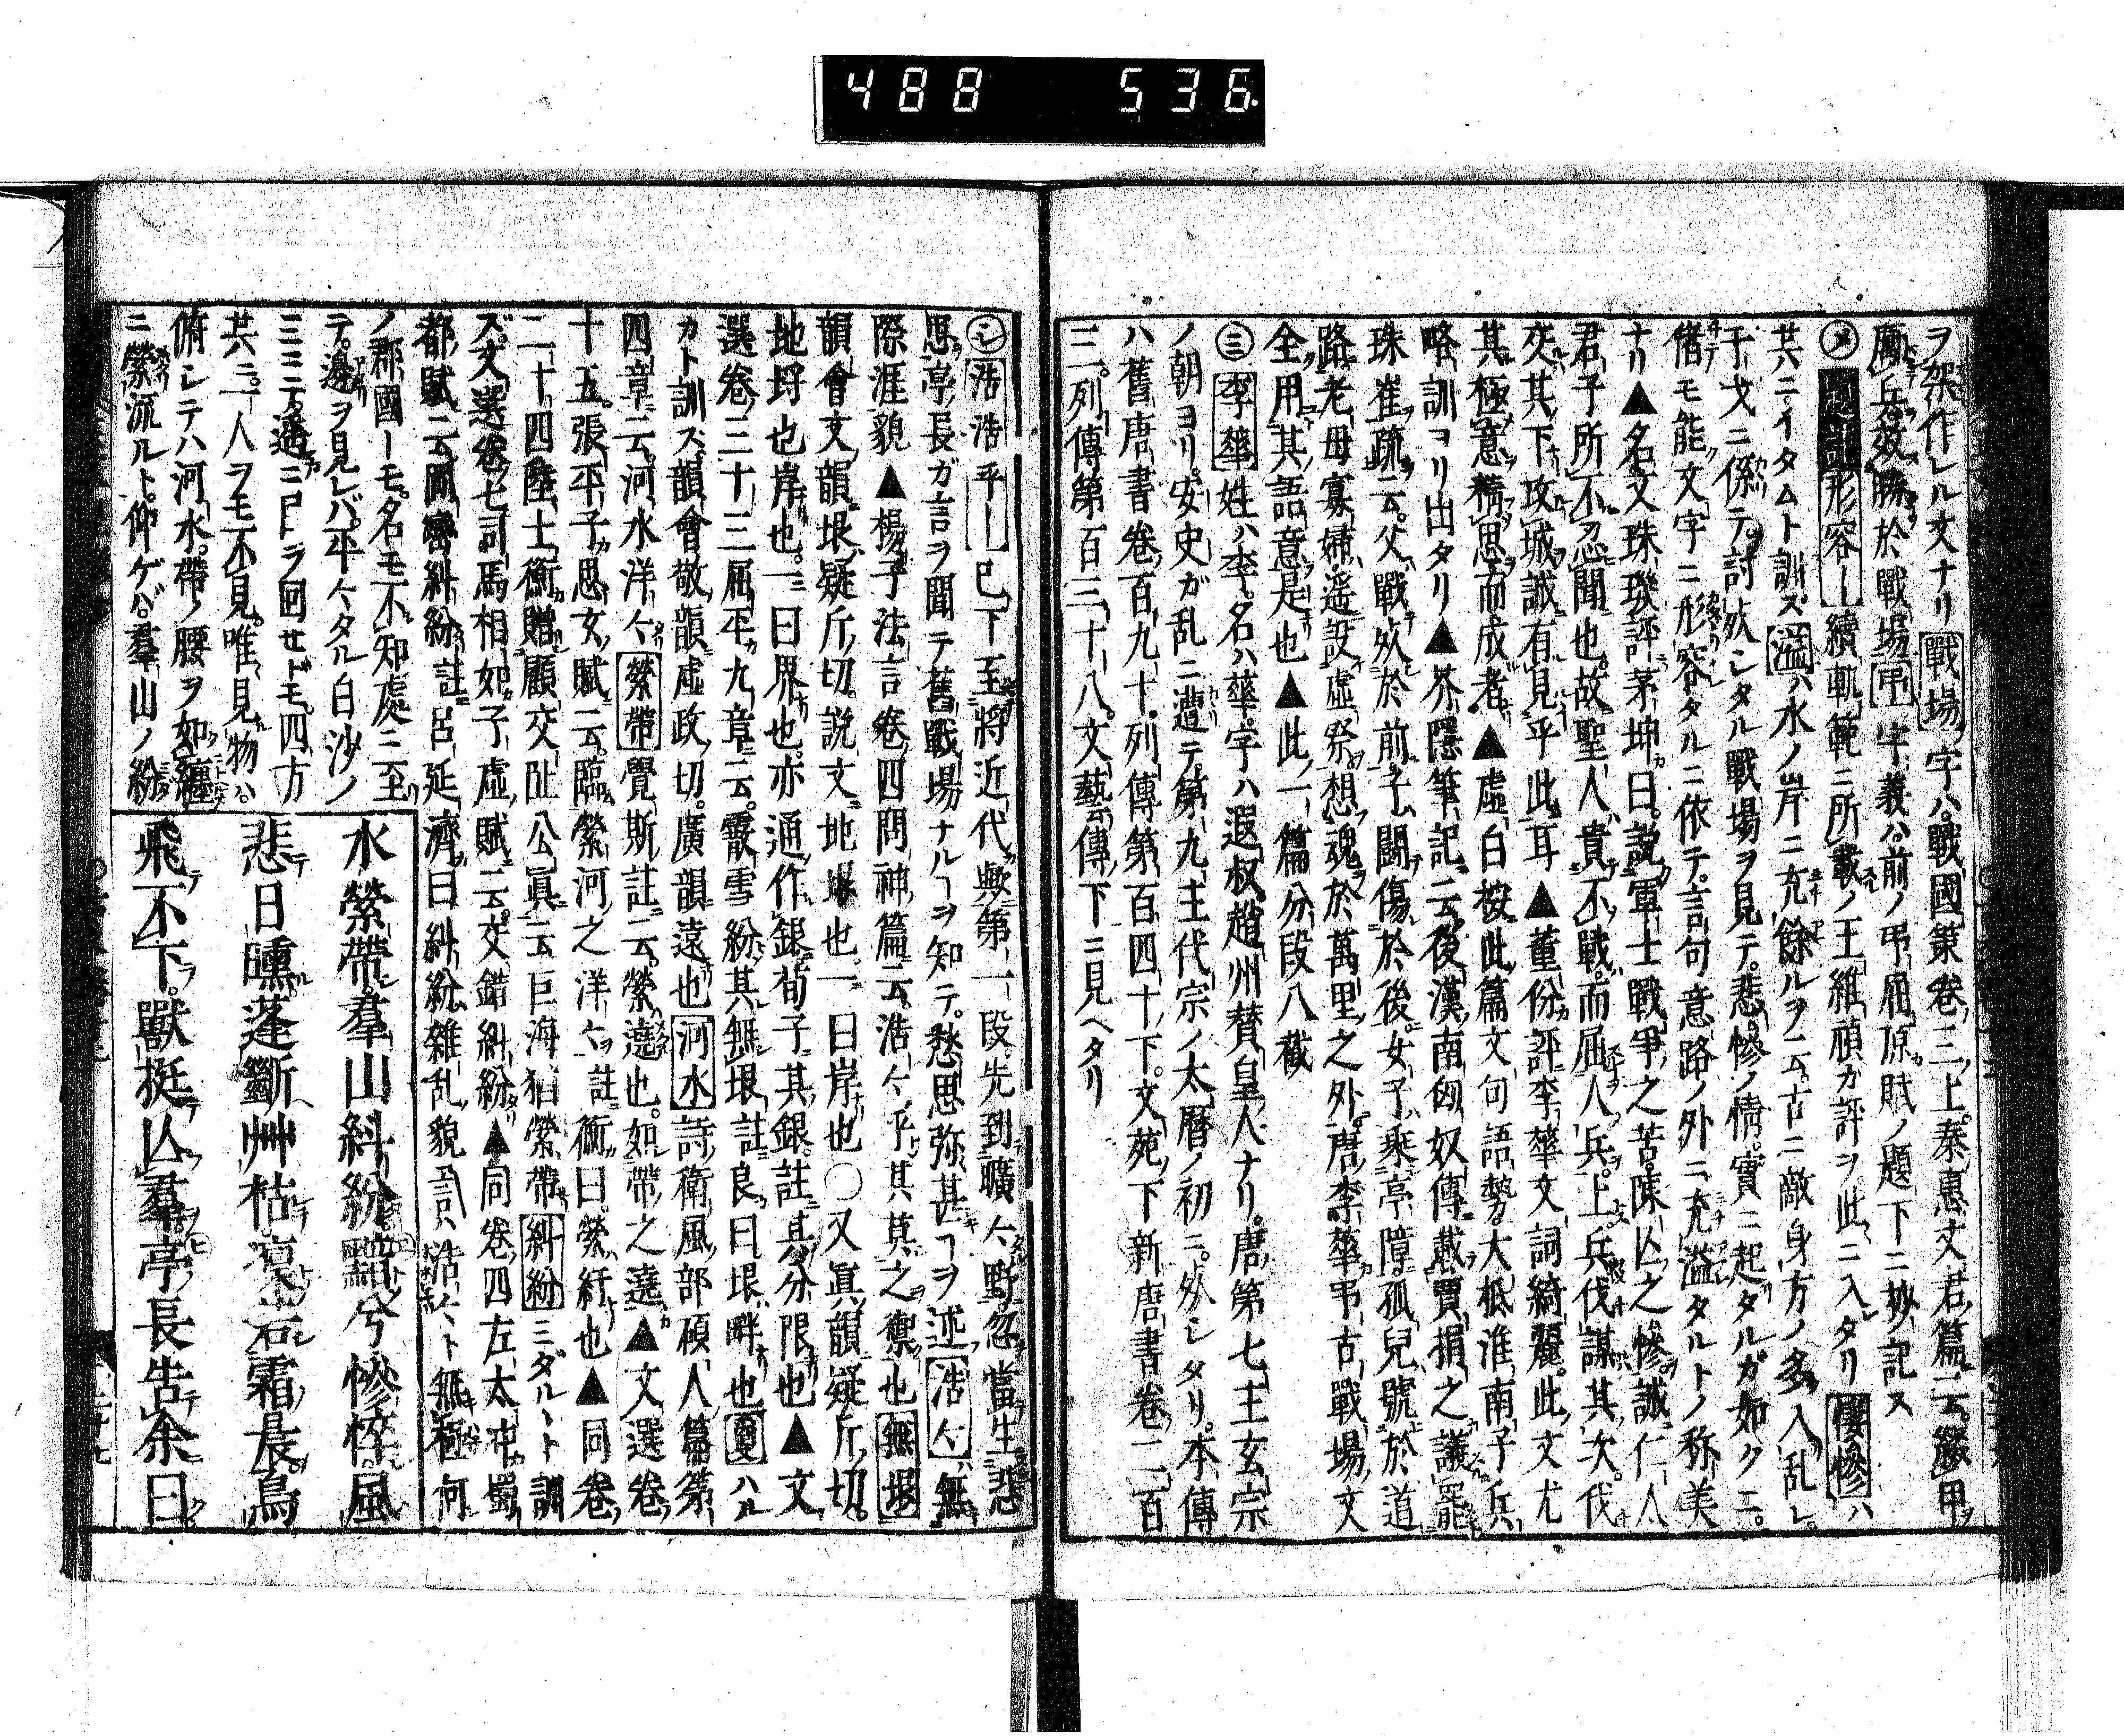 488 536
ヲ架作レル文ナリ戰場字ハ戰國策卷三上秦惠文君篇ニ云綴甲
厲兵效勝於戰場弔字義ハ前ノ弔屈原賦ノ題下ニ抄記ス
形容ー續軌範ニ所載ノ王維禎ガ評ヲ此ニ入タリ悽慘ハ
共ニイタムト訓ズ溢ハ水ノ岸ニ充餘ルヲ云古ニ敵身方ノ多人乱レ
干戈ニ係テ討死シタル戰場ヲ見テ悲慘ノ情實ニ起タルガ如クニ
偖モ能文字ニ形容タルニ依テ言句意路ノ外ニ充溢タルトノ称美
ナリ▲名文珠璣評茅坤曰說軍士戰爭之苦陳亾之慘誠仁人
君子所不忍聞也故聖人貴不戰而屈人兵上兵伐謀其次伐
交其下攻城誠有見乎此耳▲董份評李華文詞綺麗此文尤
其極意精思而成者▲虛白按此篇文句語勢大柢淮南子兵
略訓ヨリ出タリ▲芥隱筆記云後漢南匈奴傳載賈捐之議罷
珠崖疏云父戰死於前子鬪傷於後女子乘亭障孤兒號於道
路老母寡婦遥設虛祭想魂於萬里之外唐李華弔古戰場文
全用其語意是也▲此一篇分段八截
㊂李華姓ハ李名ハ華字ハ遐叔趙州賛皇人ナリ唐第七主玄宗
ノ朝ヨリ安史ガ乱ニ遭テ第九主代宗ノ太曆ノ初ニ死シタリ本傳
ハ舊唐書卷百九十列傳第百四十下文苑下新唐書卷二百
三列傳第百三十八文藝傳下ニ見ヘタリ
浩浩乎ー已下至將近代歟第一段先到曠〻野忽當生悲
思亭長ガ言ヲ聞テ舊戰場ナルヿヲ知テ愁思弥甚ヿヲ述浩〻無
際涯貌▲楊子法言卷四問神篇云浩〻乎其莫之禦也無垠
韻會文韻垠疑斤切說文地垠也一曰岸也〇又眞韻疑斤切
地埒也岸也一曰界也亦通作銀荀子其銀註其分限也▲文
選卷三十三屈平九章云霰雪紛其無垠註良曰垠畔也敻ハル
カト訓ス韻會敬韻虛政切廣韻遠也河水詩衛風部碩人篇第
四章云河水洋〻縈帶覺斯註云縈遶也如帶之遶▲文選卷
十五張平子思玄賦云臨縈河之洋〻註衡曰縈紆也▲同卷
二十四陸士衡贈顧交阯公眞云巨海猶縈帶糾紛ミダルヽト訓
ズ文選卷七司馬相如子虛賦云交錯糾紛▲同卷四左太冲蜀
都賦云岡巒糾紛註呂延濟曰糾紛雜乱貌言浩〻ト無極何
ノ郡國ーモ名モ不知處ニ至
テ邊ヲ見レバ平〻タル白沙ノ
ミニテ遥ニ回セドモ四方
共ニ一人ヲモ不見唯見物ハ
俯シテハ河水帶ノ腰ヲ如纏
ニ縈流ルト仰ゲバ羣山ノ紛
水縈帶羣山糾紛黯兮慘悴風
悲日曛蓬斷艸枯凜若霜晨鳥
飛不下獸挺亾羣亭長告余曰